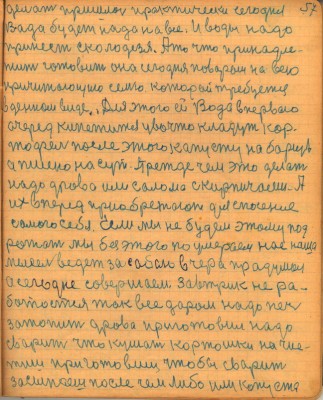 57
делат пришлос практически сегодня
Вада будет пада на вие. И воды надо
принест сколодезя. А то что принадле-
жит готовит она сегодня поваром на всю
семю который требуется
в данном виде. Для этого ей Вода впервою
очеред кипетится увочто кладут кар-
тофел после этого капусту на барщ
а пшено на суп. А прежде чем это делат
надо дрова или салома скарпичаем. А
их вперед приобретают для спосение
самого себя. Если мы не будем этому под
ражат мы без этого поумераем нас наша
ведет за сабою вчера прадумаи
асегодне совершаем. Завтрик не ра-
ботоется ток все даром надо печ
затопит дрова приготовиш надо
сварит что кушат картошки начис-
тиш приготовиш чтобы сварит
засипаеш после чем либо или капуста